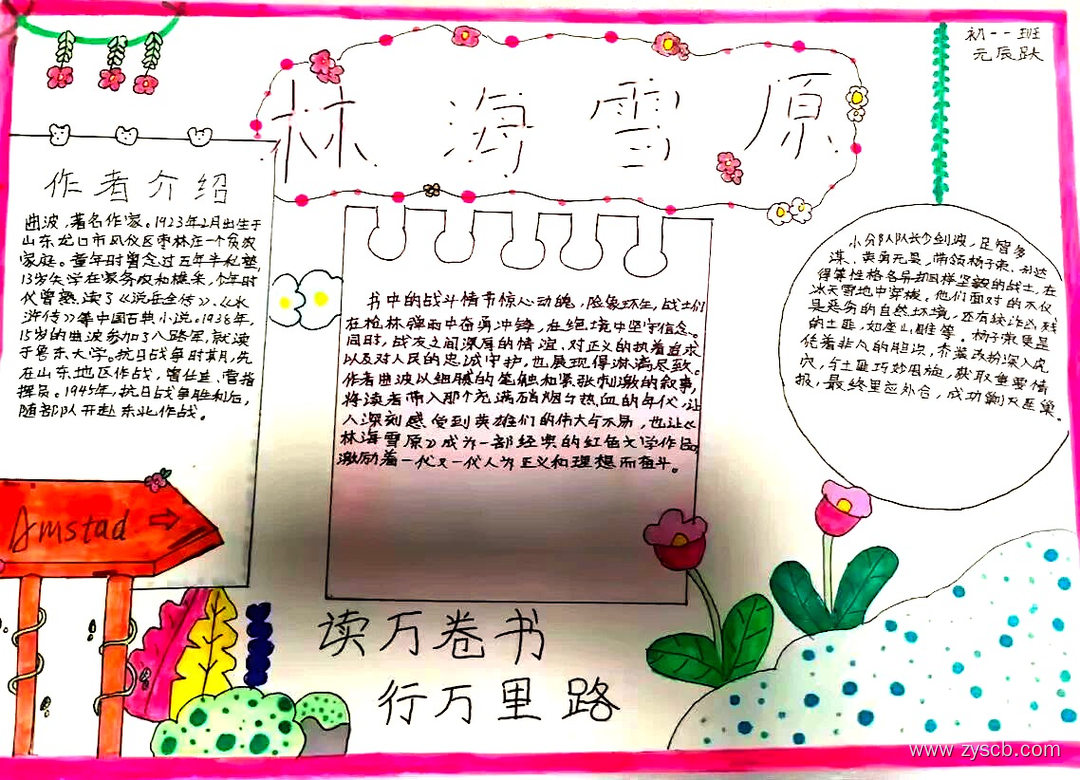 林海雪原
初一一班
元辰跃
作者介绍
曲波,著名作家。1923年2月出生于
山东龙口市凤仪区枣林庄一个贫农
家庭。童年时曾念过五年半私塾,
13岁失学在家务农和樵采,少年时
代曾熟读了《说岳全传》、《水
浒传》等中国古典小说。1938年,
15岁的曲波参加了八路军,就读
于鲁东大学。抗日战争时期,先
在山东地区作战,曾任连、营指
挥员。1945年,抗日战争胜利后,
随部队开赴东北作战。
书中的战斗情节惊心动魄,险象环生,战士们
在枪林弹雨中奋勇冲锋,在绝境中坚守信念。
同时,战友之间深厚的情谊、对正义的执着追求
以及对人民的忠诚守护,也展现得淋漓尽致。
作者曲波以细腻的笔触和紧张刺激的叙事,
将读者带入那个充满硝烟与热血的年代,让
人深刻感受到英雄们的伟大与不易,也让《
林海雪原》成为一部经典的红色文学作品,
激励着一代又一代人为正义和理想而奋斗。
小分队队长少剑波,足智多
谋、英勇无畏,带领杨子荣、刘达
得等性格各异却同样坚毅的战士,在
冰天雪地中穿梭。他们面对的不仅
是恶劣的自然环境,还有狡诈凶残
的土匪,如座山雕等。杨子荣更是
凭着非凡的胆识,乔装改扮深入虎
穴,与土匪巧妙周旋,获取重要情
报,最终里应外合,成功剿灭匪巢。
Amstad
读万卷书
行万里路
www.zyscb.com